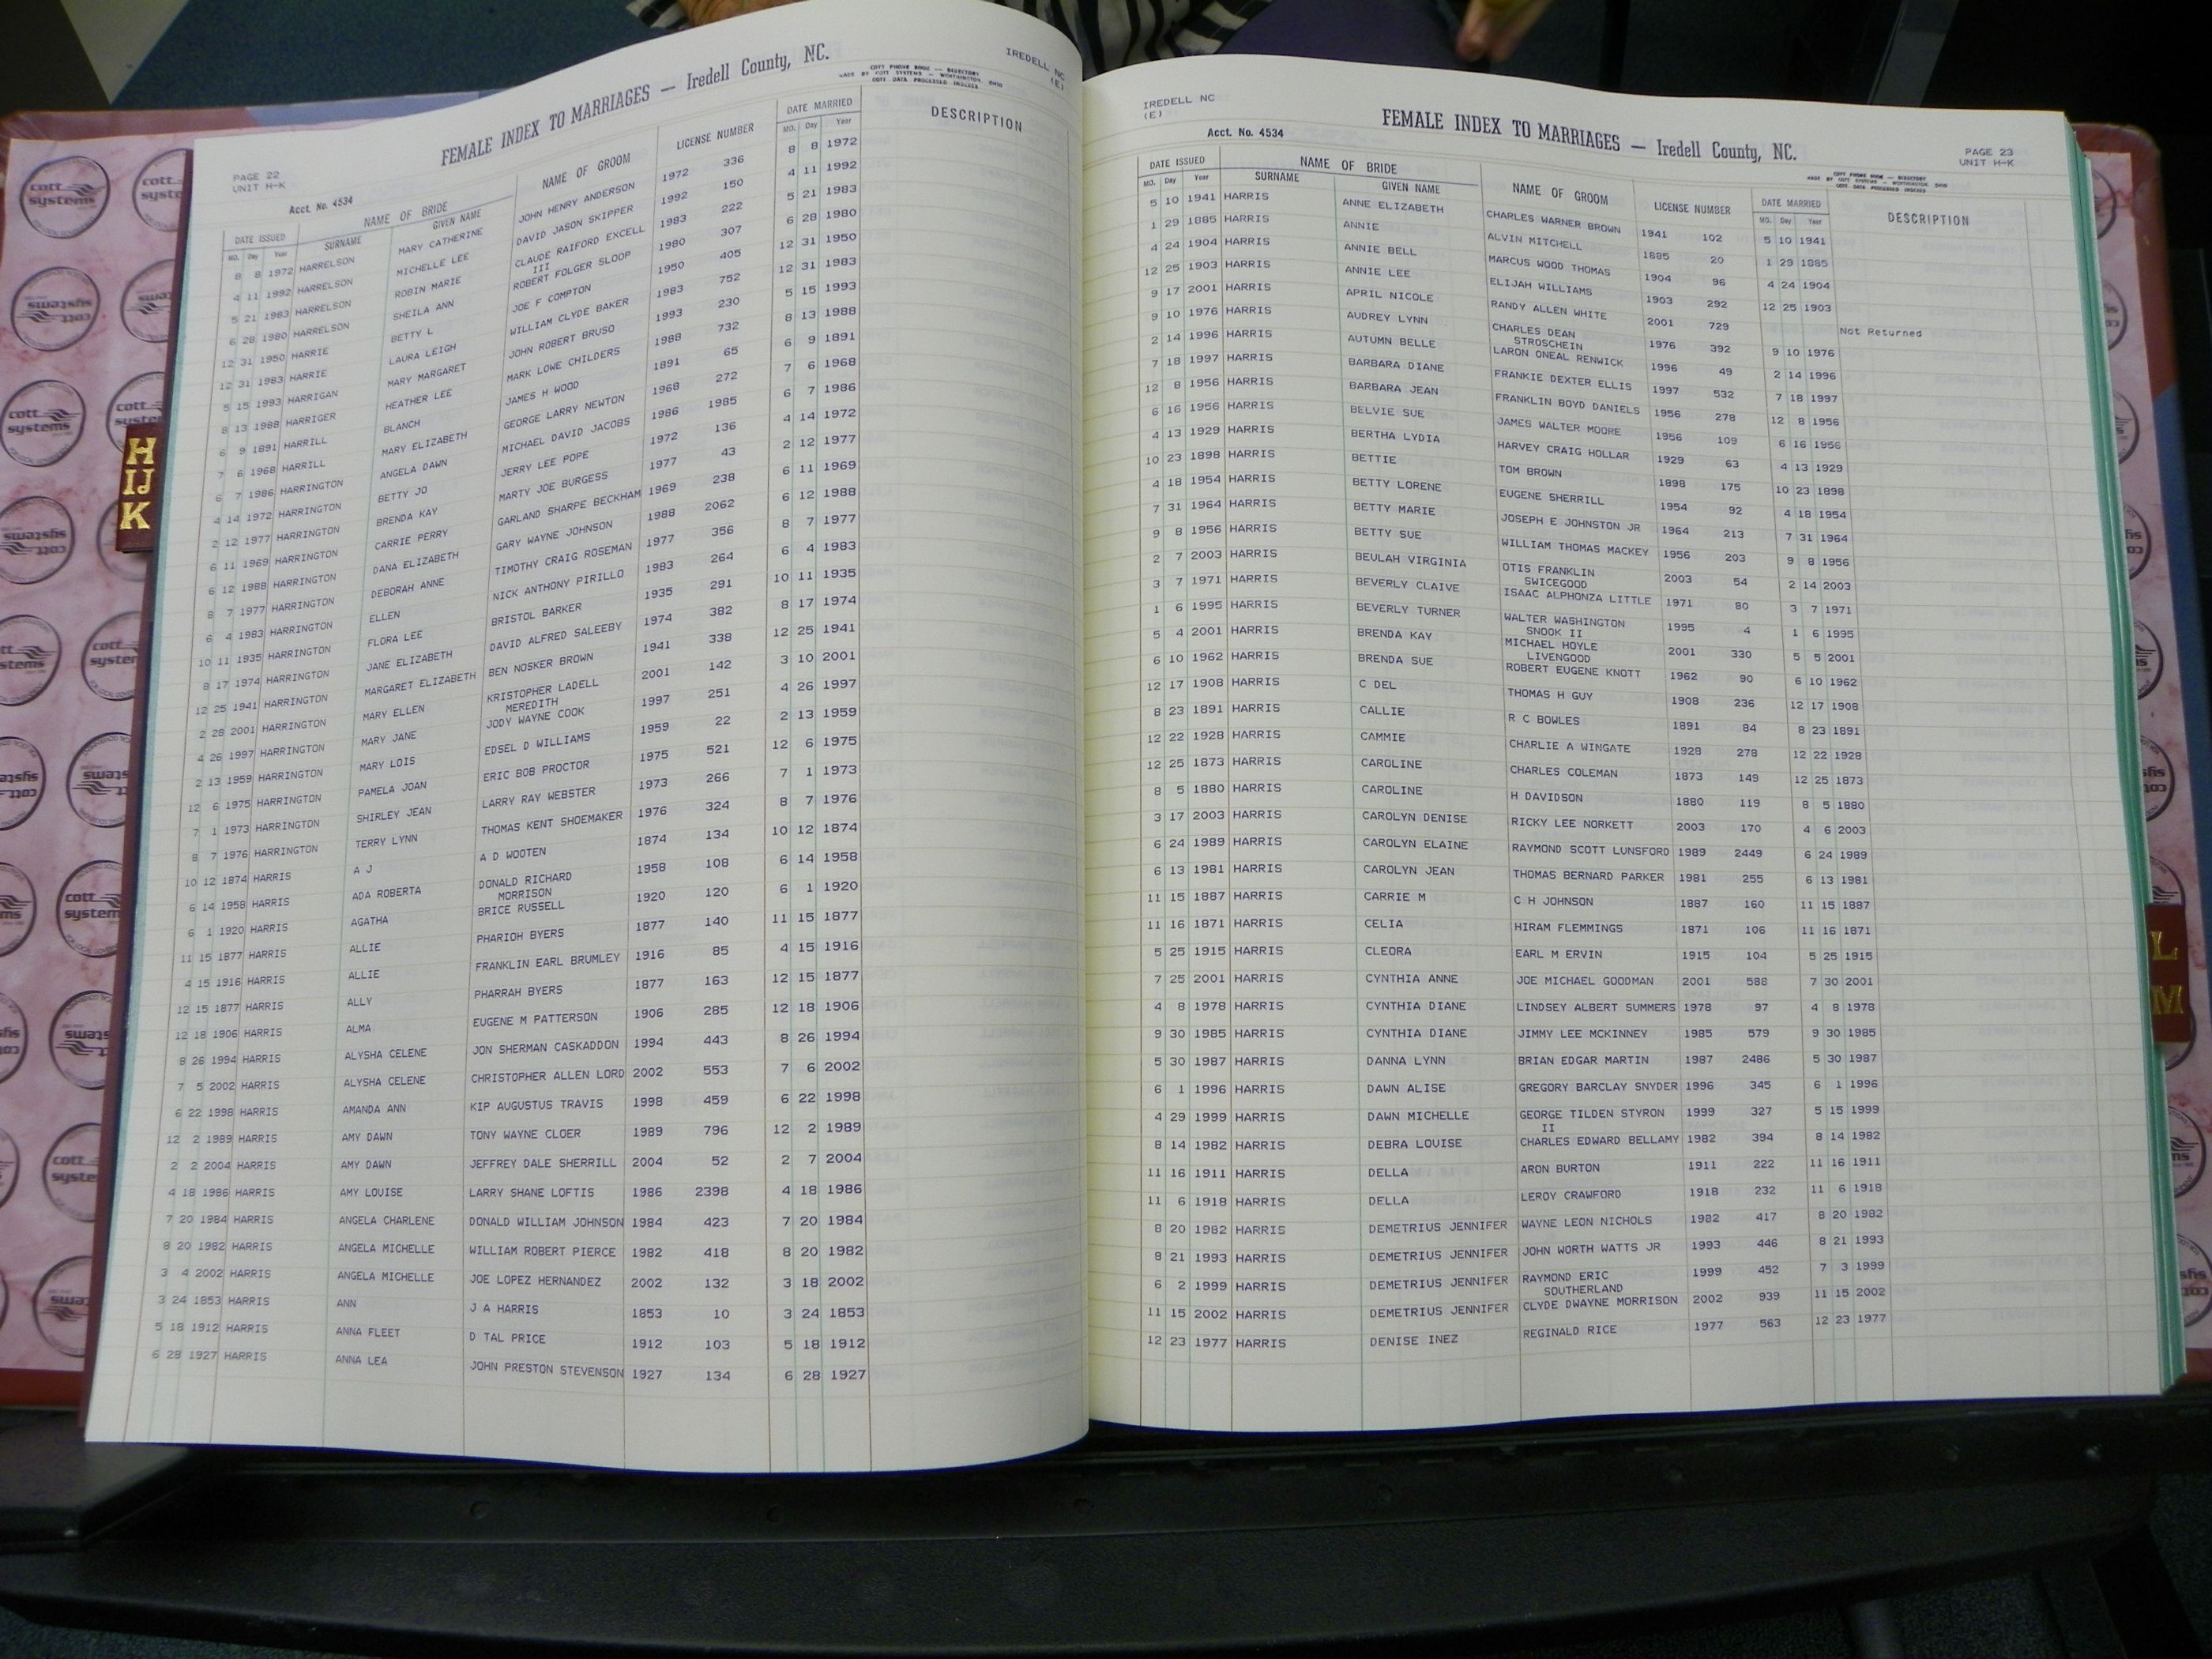 PAGE 22
UNIT H-K
FEMALE INDEX TO MARRIAGES — Iredell County, NC.
IREDELL NC
(E)
MADE BY COTT SYSTEMS — WORTHINGTON, OHIO
COTT PHONE BOOK — DIRECTORY
COTT DATA PROCESSED INDEXES
Acct. No. 4534
DATE ISSUED NAME OF BRIDE NAME OF GROOM LICENSE NUMBER DATE MARRIED DESCRIPTION
MO. Day Year SURNAME GIVEN NAME MO. Day Year
8 8 1972 HARRELSON MARY CATHERINE JOHN HENRY ANDERSON 1972 336 8 8 1972
4 11 1992 HARRELSON MICHELLE LEE DAVID JASON SKIPPER 1992 150 4 11 1992
5 21 1983 HARRELSON ROBIN MARIE CLAUDE RAIFORD EXCELL 1983 222 5 21 1983
III
6 28 1980 HARRELSON SHEILA ANN ROBERT FOLGER SLOOP 1980 307 6 28 1980
12 31 1950 HARRIE BETTY L JOE F COMPTON 1950 405 12 31 1950
12 31 1983 HARRIE LAURA LEIGH WILLIAM CLYDE BAKER 1983 752 12 31 1983
5 15 1993 HARRIGAN MARY MARGARET JOHN ROBERT BRUSO 1993 230 5 15 1993
8 13 1988 HARRIGER HEATHER LEE MARK LOWE CHILDERS 1988 732 8 13 1988
6 9 1891 HARRILL BLANCH JAMES H WOOD 1891 65 6 9 1891
7 6 1968 HARRILL MARY ELIZABETH GEORGE LARRY NEWTON 1968 272 7 6 1968
6 7 1986 HARRINGTON ANGELA DAWN MICHAEL DAVID JACOBS 1986 1985 6 7 1986
4 14 1972 HARRINGTON BETTY JO JERRY LEE POPE 1972 136 4 14 1972
2 12 1977 HARRINGTON BRENDA KAY MARTY JOE BURGESS 1977 43 2 12 1977
6 11 1969 HARRINGTON CARRIE PERRY GARLAND SHARPE BECKHAM 1969 238 6 11 1969
6 12 1988 HARRINGTON DANA ELIZABETH GARY WAYNE JOHNSON 1988 2062 6 12 1988
8 7 1977 HARRINGTON DEBORAH ANNE TIMOTHY CRAIG ROSEMAN 1977 356 8 7 1977
6 4 1983 HARRINGTON ELLEN NICK ANTHONY PIRILLO 1983 264 6 4 1983
10 11 1935 HARRINGTON FLORA LEE BRISTOL BARKER 1935 291 10 11 1935
8 17 1974 HARRINGTON JANE ELIZABETH DAVID ALFRED SALEEBY 1974 382 8 17 1974
12 25 1941 HARRINGTON MARGARET ELIZABETH BEN NOSKER BROWN 1941 338 12 25 1941
2 28 2001 HARRINGTON MARY ELLEN KRISTOPHER LADELL 2001 142 3 10 2001
MEREDITH
4 26 1997 HARRINGTON MARY JANE JODY WAYNE COOK 1997 251 4 26 1997
2 13 1959 HARRINGTON MARY LOIS EDSEL D WILLIAMS 1959 22 2 13 1959
12 6 1975 HARRINGTON PAMELA JOAN ERIC BOB PROCTOR 1975 521 12 6 1975
7 1 1973 HARRINGTON SHIRLEY JEAN LARRY RAY WEBSTER 1973 266 7 1 1973
8 7 1976 HARRINGTON TERRY LYNN THOMAS KENT SHOEMAKER 1976 324 8 7 1976
10 12 1874 HARRIS A J A D WOOTEN 1874 134 10 12 1874
6 14 1958 HARRIS ADA ROBERTA DONALD RICHARD 1958 108 6 14 1958
MORRISON
6 1 1920 HARRIS AGATHA BRICE RUSSELL 1920 120 6 1 1920
11 15 1877 HARRIS ALLIE PHARIOH BYERS 1877 140 11 15 1877
4 15 1916 HARRIS ALLIE FRANKLIN EARL BRUMLEY 1916 85 4 15 1916
12 15 1877 HARRIS ALLY PHARRAH BYERS 1877 163 12 15 1877
12 18 1906 HARRIS ALMA EUGENE M PATTERSON 1906 285 12 18 1906
8 26 1994 HARRIS ALYSHA CELENE JON SHERMAN CASKADDON 1994 443 8 26 1994
7 5 2002 HARRIS ALYSHA CELENE CHRISTOPHER ALLEN LORD 2002 553 7 6 2002
6 22 1998 HARRIS AMANDA ANN KIP AUGUSTUS TRAVIS 1998 459 6 22 1998
12 2 1989 HARRIS AMY DAWN TONY WAYNE CLOER 1989 796 12 2 1989
2 2 2004 HARRIS AMY DAWN JEFFREY DALE SHERRILL 2004 52 2 7 2004
4 18 1986 HARRIS AMY LOUISE LARRY SHANE LOFTIS 1986 2398 4 18 1986
7 20 1984 HARRIS ANGELA CHARLENE DONALD WILLIAM JOHNSON 1984 423 7 20 1984
8 20 1982 HARRIS ANGELA MICHELLE WILLIAM ROBERT PIERCE 1982 418 8 20 1982
3 4 2002 HARRIS ANGELA MICHELLE JOE LOPEZ HERNANDEZ 2002 132 3 18 2002
3 24 1853 HARRIS ANN J A HARRIS 1853 10 3 24 1853
5 18 1912 HARRIS ANNA FLEET D TAL PRICE 1912 103 5 18 1912
6 28 1927 HARRIS ANNA LEA JOHN PRESTON STEVENSON 1927 134 6 28 1927
IREDELL NC
(E)
FEMALE INDEX TO MARRIAGES — Iredell County, NC.
PAGE 23
UNIT H-K
Acct. No. 4534
DATE ISSUED NAME OF BRIDE NAME OF GROOM LICENSE NUMBER DATE MARRIED DESCRIPTION
MO. Day Year SURNAME GIVEN NAME MO. Day Year
5 10 1941 HARRIS ANNE ELIZABETH CHARLES WARNER BROWN 1941 102 5 10 1941
1 29 1885 HARRIS ANNIE ALVIN MITCHELL 1885 20 1 29 1885
4 24 1904 HARRIS ANNIE BELL MARCUS WOOD THOMAS 1904 96 4 24 1904
12 25 1903 HARRIS ANNIE LEE ELIJAH WILLIAMS 1903 292 12 25 1903
9 17 2001 HARRIS APRIL NICOLE RANDY ALLEN WHITE 2001 729 Not Returned
9 10 1976 HARRIS AUDREY LYNN CHARLES DEAN 1976 392 9 10 1976
STROSCHEIN
2 14 1996 HARRIS AUTUMN BELLE LARON ONEAL RENWICK 1996 49 2 14 1996
7 18 1997 HARRIS BARBARA DIANE FRANKIE DEXTER ELLIS 1997 532 7 18 1997
12 8 1956 HARRIS BARBARA JEAN FRANKLIN BOYD DANIELS 1956 278 12 8 1956
6 16 1956 HARRIS BELVIE SUE JAMES WALTER MOORE 1956 109 6 16 1956
4 13 1929 HARRIS BERTHA LYDIA HARVEY CRAIG HOLLAR 1929 63 4 13 1929
10 23 1898 HARRIS BETTIE TOM BROWN 1898 175 10 23 1898
4 18 1954 HARRIS BETTY LORENE EUGENE SHERRILL 1954 92 4 18 1954
7 31 1964 HARRIS BETTY MARIE JOSEPH E JOHNSTON JR 1964 213 7 31 1964
9 8 1956 HARRIS BETTY SUE WILLIAM THOMAS MACKEY 1956 203 9 8 1956
2 7 2003 HARRIS BEULAH VIRGINIA OTIS FRANKLIN 2003 54 2 14 2003
SWICEGOOD
3 7 1971 HARRIS BEVERLY CLAIVE ISAAC ALPHONZA LITTLE 1971 80 3 7 1971
1 6 1995 HARRIS BEVERLY TURNER WALTER WASHINGTON 1995 4 1 6 1995
SNOOK II
5 4 2001 HARRIS BRENDA KAY MICHAEL HOYLE 2001 330 5 5 2001
LIVENGOOD
6 10 1962 HARRIS BRENDA SUE ROBERT EUGENE KNOTT 1962 90 6 10 1962
12 17 1908 HARRIS C DEL THOMAS H GUY 1908 236 12 17 1908
8 23 1891 HARRIS CALLIE R C BOWLES 1891 84 8 23 1891
12 22 1928 HARRIS CAMMIE CHARLIE A WINGATE 1928 278 12 22 1928
12 25 1873 HARRIS CAROLINE CHARLES COLEMAN 1873 149 12 25 1873
8 5 1880 HARRIS CAROLINE H DAVIDSON 1880 119 8 5 1880
3 17 2003 HARRIS CAROLYN DENISE RICKY LEE NORKETT 2003 170 4 6 2003
6 24 1989 HARRIS CAROLYN ELAINE RAYMOND SCOTT LUNSFORD 1989 2449 6 24 1989
6 13 1981 HARRIS CAROLYN JEAN THOMAS BERNARD PARKER 1981 255 6 13 1981
11 15 1887 HARRIS CARRIE M C H JOHNSON 1887 160 11 15 1887
11 16 1871 HARRIS CELIA HIRAM FLEMMINGS 1871 106 11 16 1871
5 25 1915 HARRIS CLEORA EARL M ERVIN 1915 104 5 25 1915
7 25 2001 HARRIS CYNTHIA ANNE JOE MICHAEL GOODMAN 2001 588 7 30 2001
4 8 1978 HARRIS CYNTHIA DIANE LINDSEY ALBERT SUMMERS 1978 97 4 8 1978
9 30 1985 HARRIS CYNTHIA DIANE JIMMY LEE MCKINNEY 1985 579 9 30 1985
5 30 1987 HARRIS DANNA LYNN BRIAN EDGAR MARTIN 1987 2486 5 30 1987
6 1 1996 HARRIS DAWN ALISE GREGORY BARCLAY SNYDER 1996 345 6 1 1996
4 29 1999 HARRIS DAWN MICHELLE GEORGE TILDEN STYRON 1999 327 5 15 1999
II
8 14 1982 HARRIS DEBRA LOUISE CHARLES EDWARD BELLAMY 1982 394 8 14 1982
11 16 1911 HARRIS DELLA ARON BURTON 1911 222 11 16 1911
11 6 1918 HARRIS DELLA LEROY CRAWFORD 1918 232 11 6 1918
8 20 1982 HARRIS DEMETRIUS JENNIFER WAYNE LEON NICHOLS 1982 417 8 20 1982
8 21 1993 HARRIS DEMETRIUS JENNIFER JOHN WORTH WATTS JR 1993 446 8 21 1993
6 2 1999 HARRIS DEMETRIUS JENNIFER RAYMOND ERIC 1999 452 7 3 1999
SOUTHERLAND
11 15 2002 HARRIS DEMETRIUS JENNIFER CLYDE DWAYNE MORRISON 2002 939 11 15 2002
12 23 1977 HARRIS DENISE INEZ REGINALD RICE 1977 563 12 23 1977
H
IJ
K
L
M
cott
systems